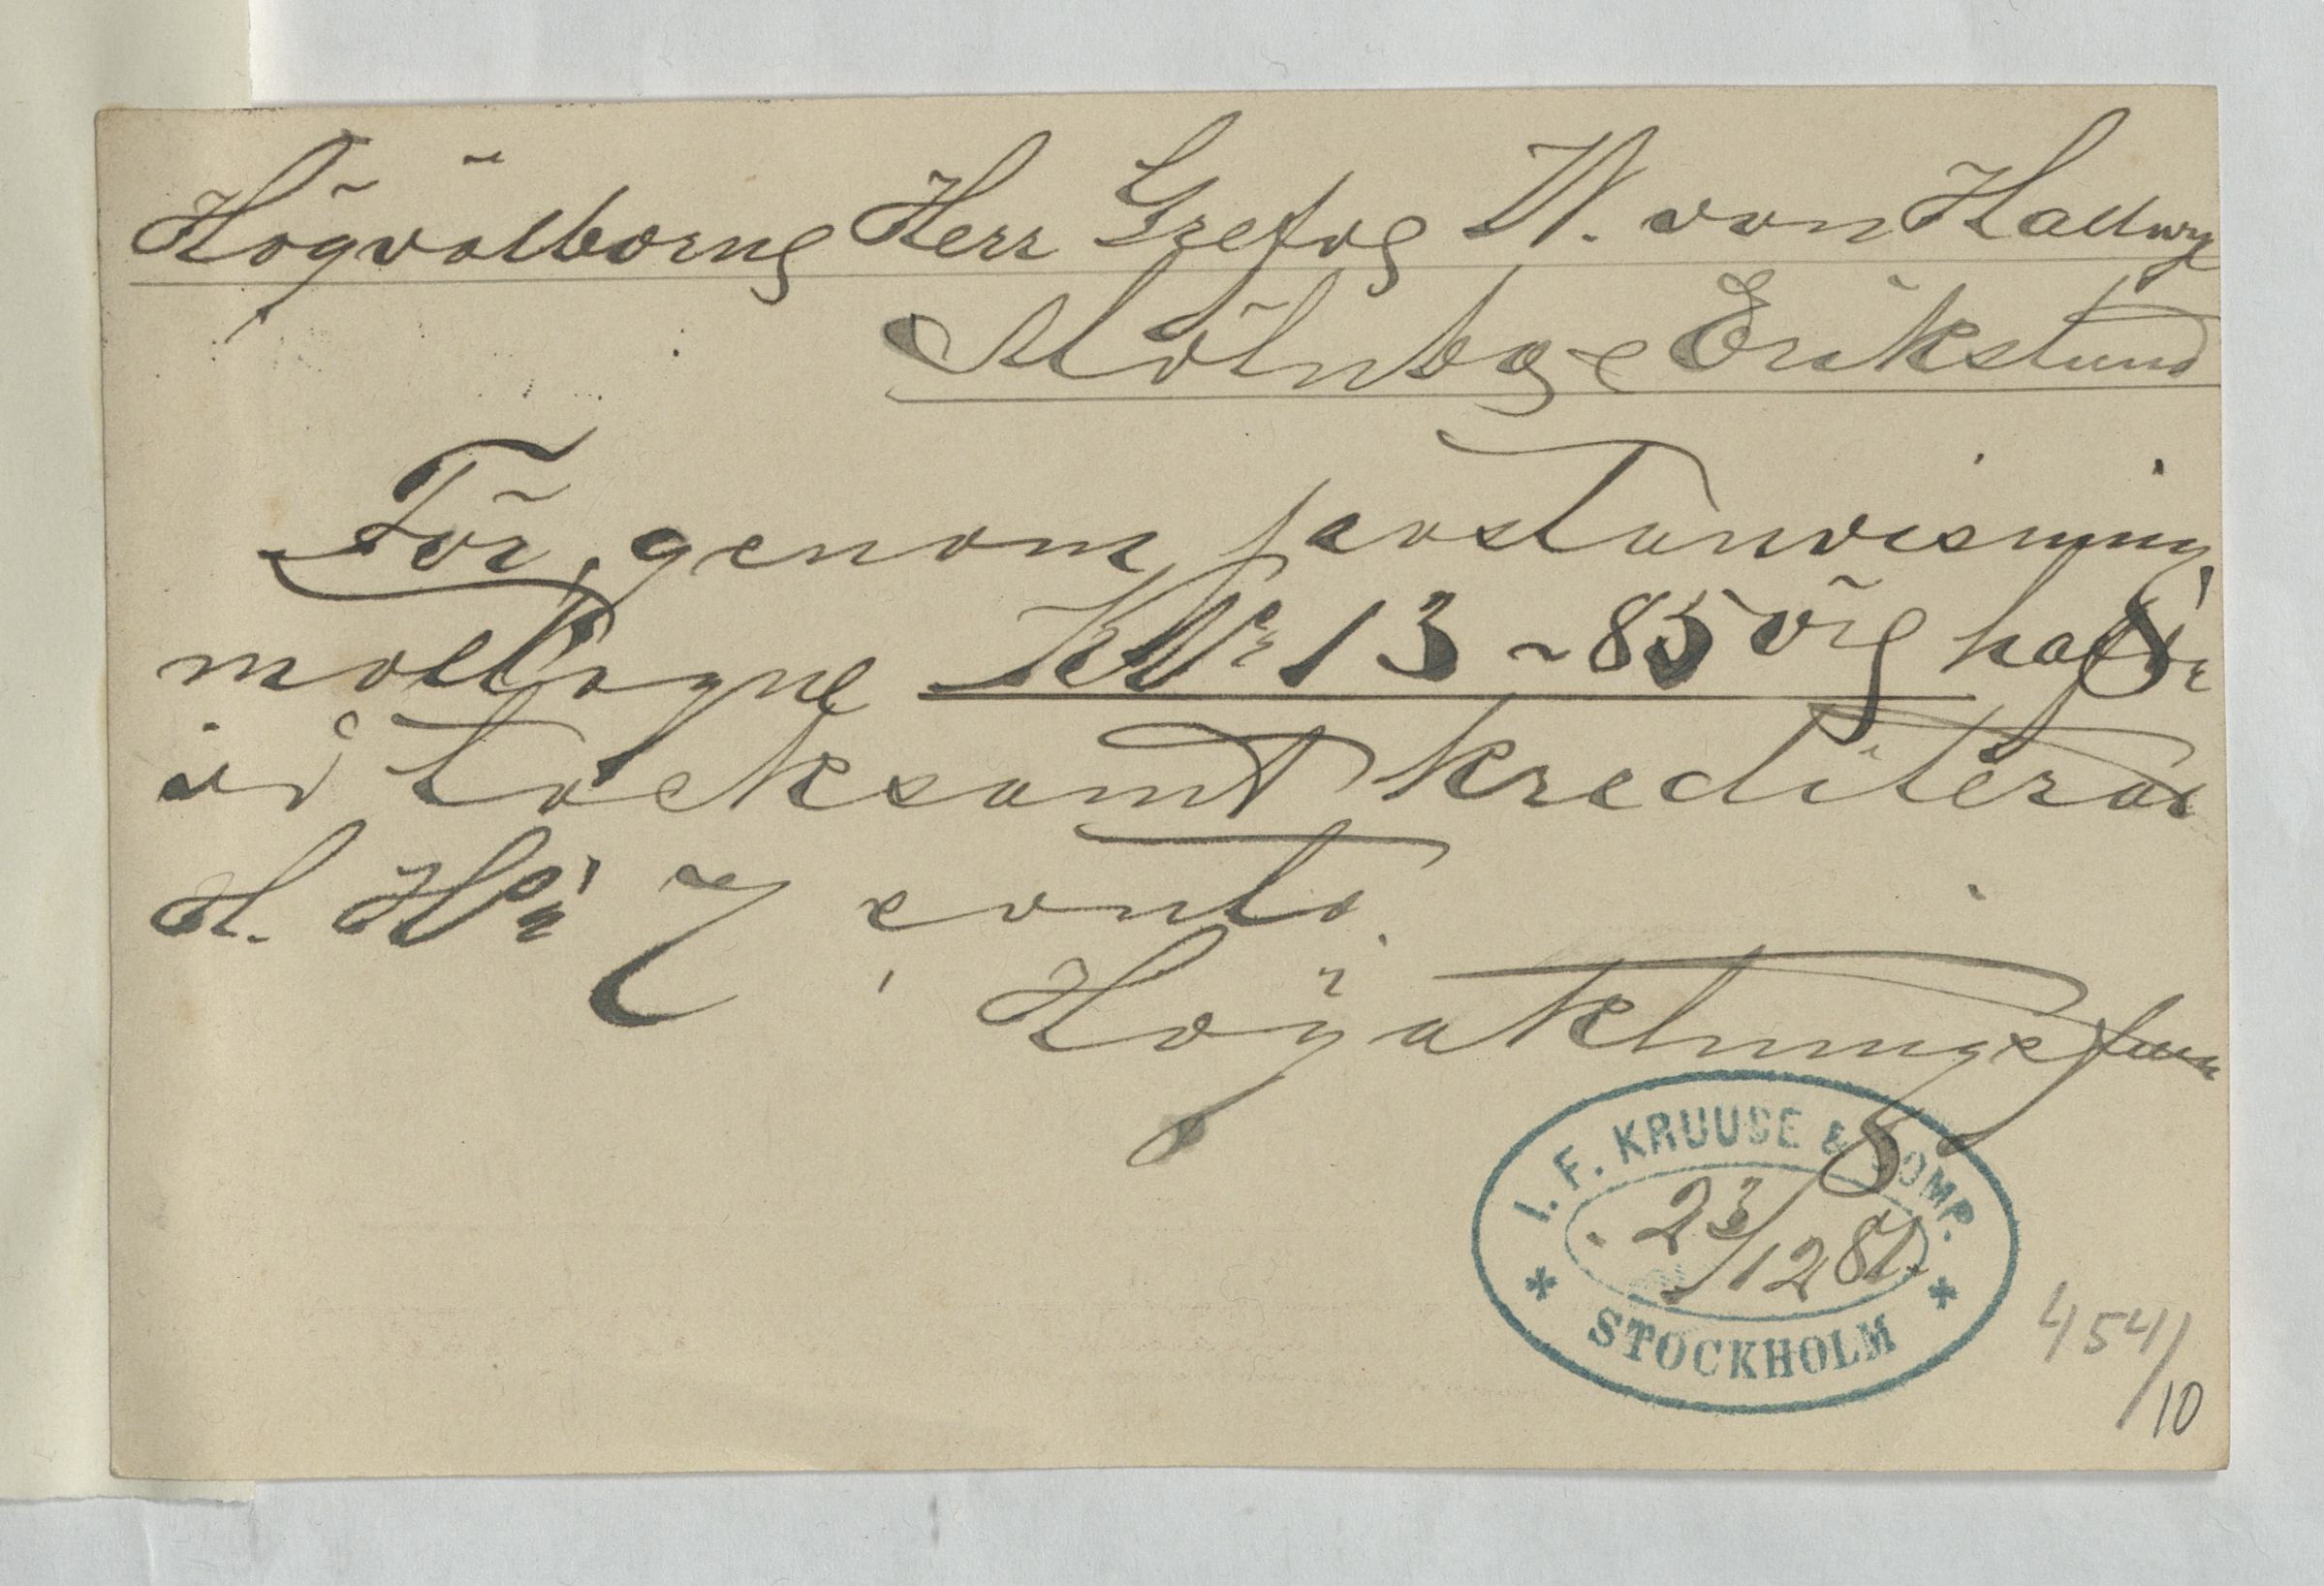 Högvälborne Herr Grefve W. von Hallwyl
Mölnbo - Erikslund
För, genom postanvisning
mottagne Kr 13 ~ 85 öre hafva
vi tacksamt krediterat
H. Hr conto.
Högaktningsfullt
I. F. KRUUSE & COMP.
23/12 87.
* STOCKHOLM *
454/10